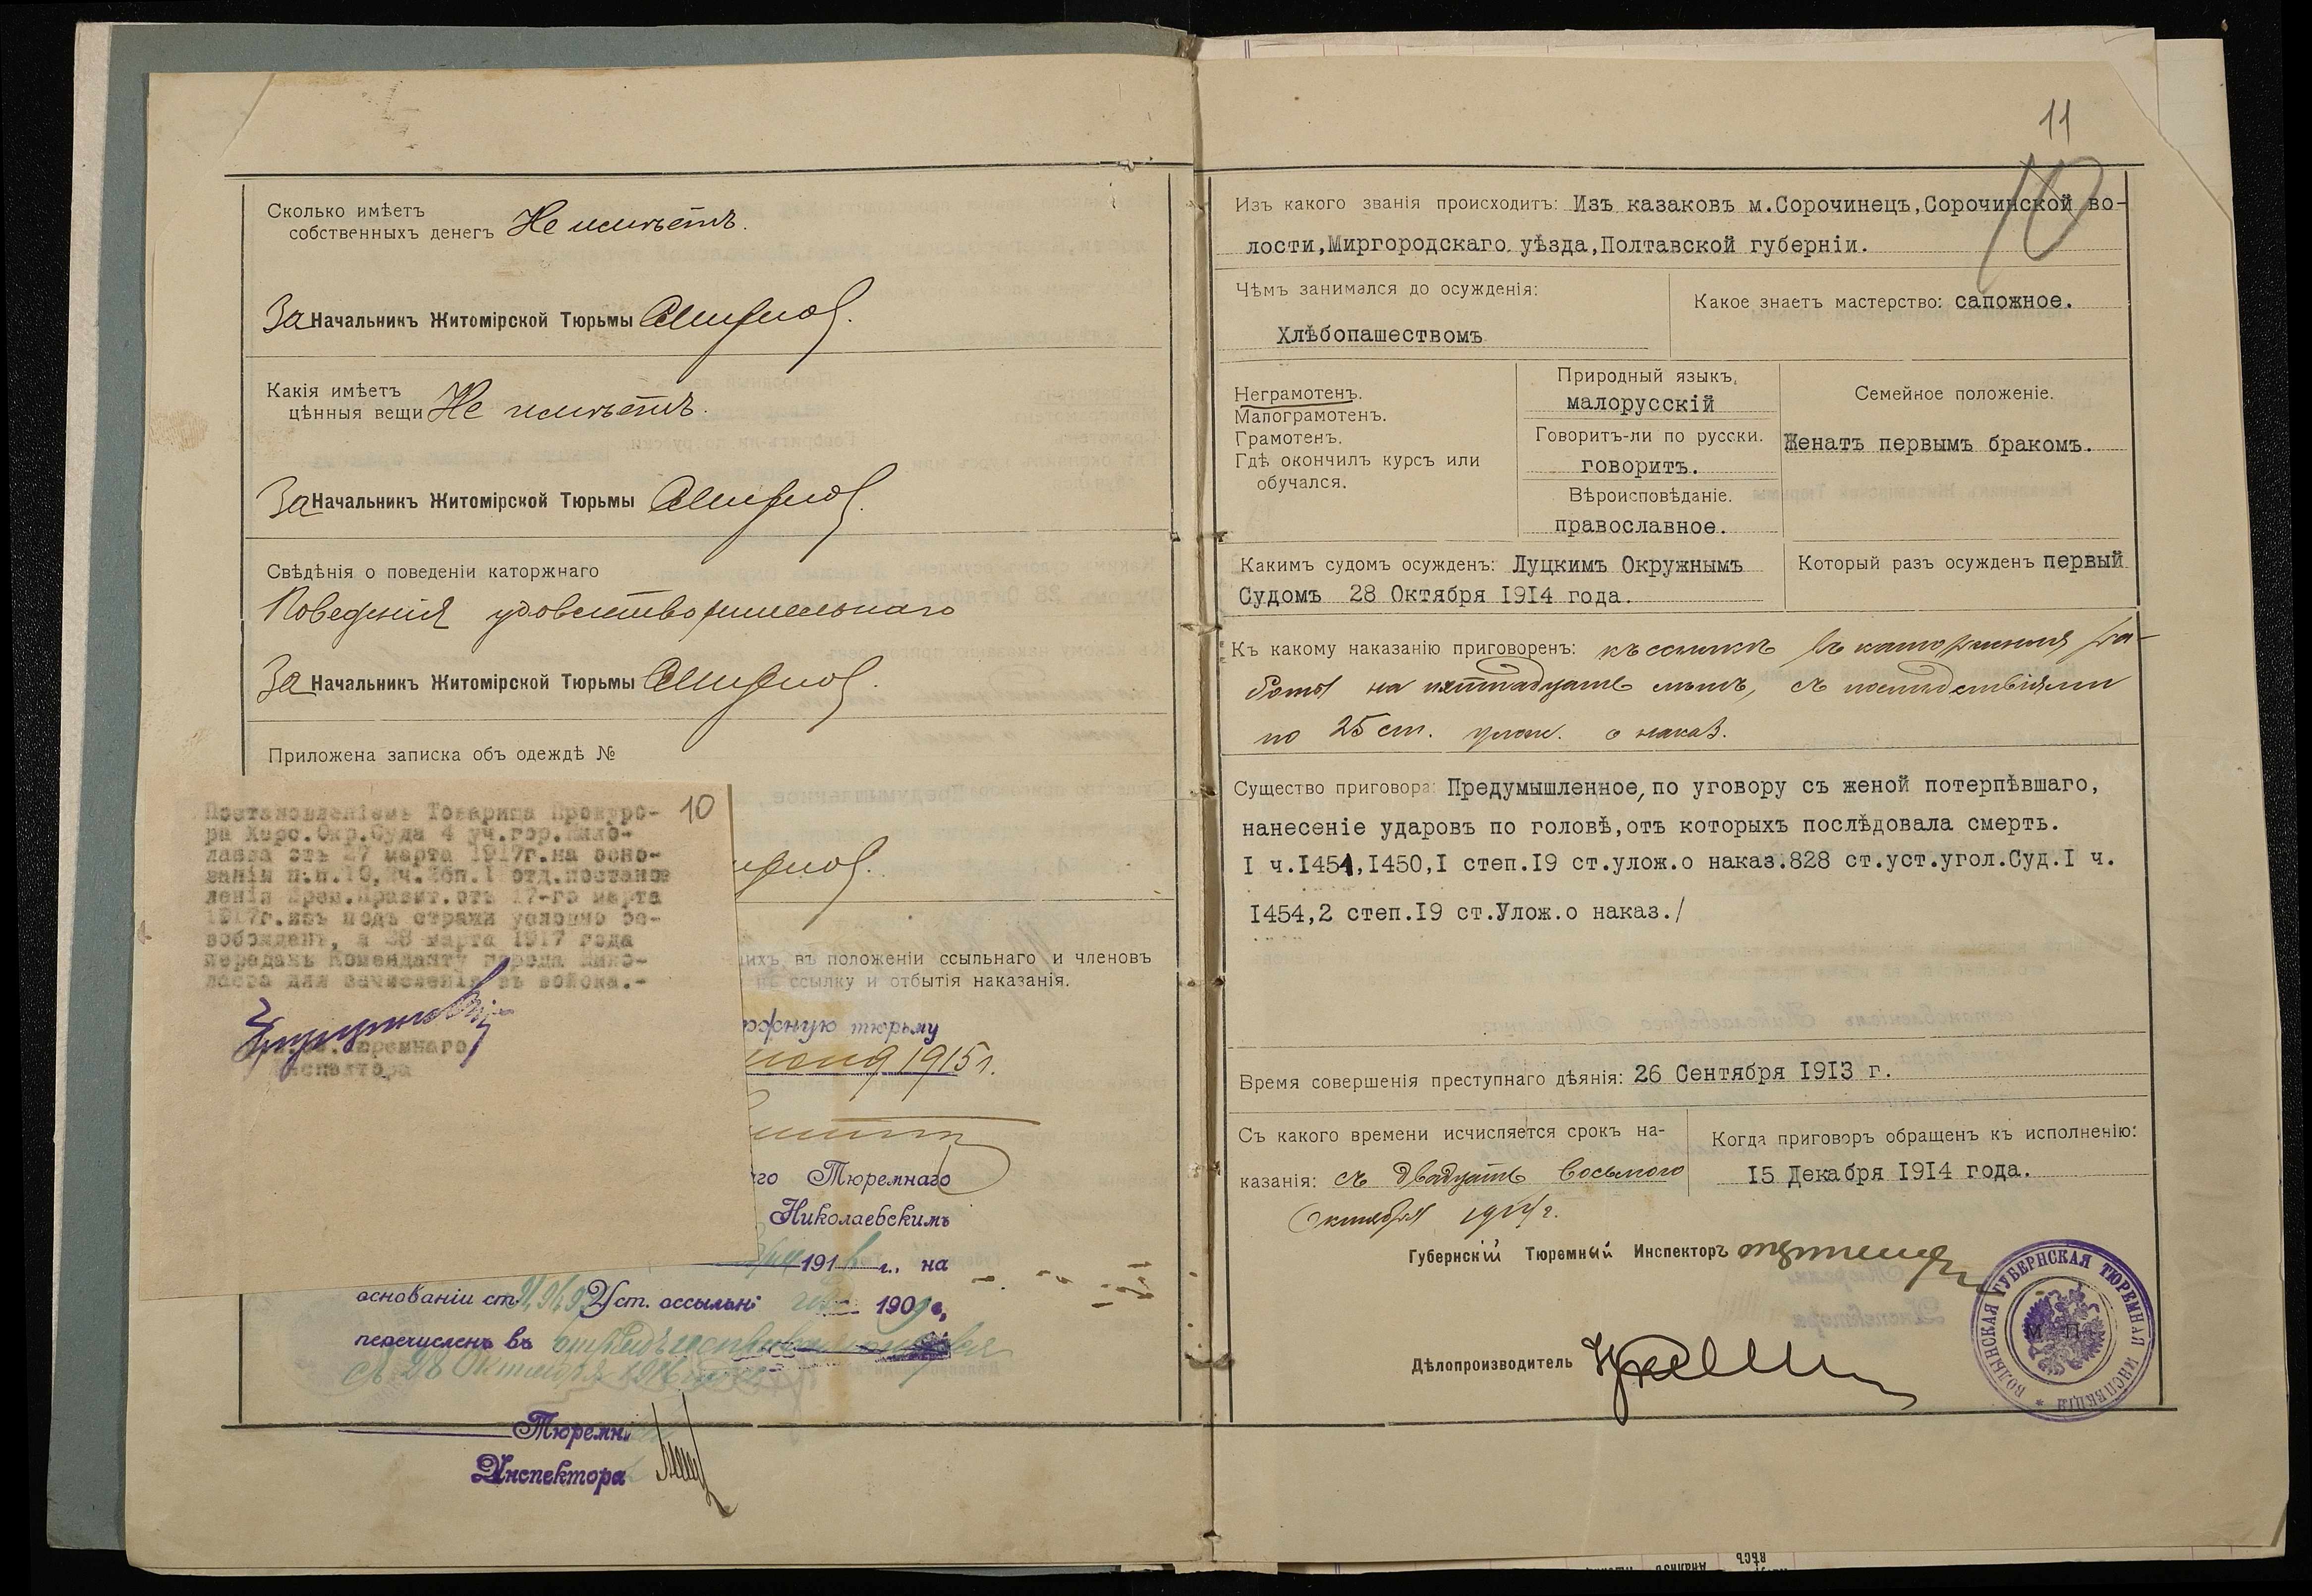 Сколько имѣетъ
собственныхъ денегъ Не имѣетъ.
За Начальникъ Житомірской Тюрьмы
Какія имѣетъ
цѣнныя вещи Не имѣетъ.
За Начальникъ Житомірской Тюрьмы
Свѣдѣнія о поведеніи каторжнаго
Поведенія удовлетворительнаго
За Начальникъ Житомірской Тюрьмы
Приложена записка объ одеждѣ №
10
Постановленіемъ Товарища Прокуро-
ра Херс.Окр.Суда 4 уч.гор.Нико-
лаева отъ 27 марта 1917г.на осно-
ваніи п.п.10, отд.постанов
ленія Врем.Правит.отъ 17-го марта
1917г.изъ подъ стражи условно ос-
вобожденъ, и 28 марта 1917 года
переданъ Коменданту города Нико-
лаева для зачисленія въ войска.-
Тюремнаго
Инспектора
ихъ въ положеніи ссыльнаго и членовъ
ссылку и отбытія наказанія.
тюрьму
1915г.
го Тюремнаго
Николаевскимъ
191 г., на
основаніи ст. Уст. о ссыльн. 1909 г.,
перечисленъ въ
съ 28 Октября 1916
Тюремн
Инспектора
11
10
Изъ какого званія происходитъ: Изъ казаковъ м.Сорочинецъ,Сорочинской во-
лости,Миргородскаго уѣзда,Полтавской губерніи.
Чѣмъ занимался до осужденія:
Хлѣбопашествомъ
Какое знаетъ мастерство: сапожное.
Неграмотенъ.
Малограмотенъ.
Грамотенъ.
Гдѣ окончилъ курсъ или
обучался.
Природный языкъ.
малорусскій
Говоритъ-ли по русски.
говоритъ.
Вѣроисповѣданіе.
православное.
Семейное положеніе.
Женатъ первымъ бракомъ.
Какимъ судомъ осужденъ: Луцкимъ Окружнымъ
Судомъ 28 Октября I9I4 года.
Который разъ осужденъ первый
Къ какому наказанію приговоренъ: къ ссылкѣ въ каторжныя ра-
боты на пятнадцать лѣтъ, съ послѣдствіями
по 25 ст. улож. о наказ.
Существо приговора: Предумышленное, по уговору съ женой потерпѣвшаго,
нанесеніе ударовъ по головѣ,отъ которыхъ послѣдовала смерть.
I ч.I454,I450,I степ.I9 ст.улож.о наказ.828 ст.уст.угол.Суд.I ч.
I454,2 степ.I9 ст.Улож.о наказ./
Время совершенія преступнаго дѣянія: 26 Сентября I9I3 г.
Съ какого времени исчисляется срокъ на-
казанія: съ двадцать восьмого
Октября 1914 г.
Когда приговоръ обращенъ къ исполненію:
I5 Декабря I9I4 года.
Губернскій Тюремный Инспекторъ
Дѣлопроизводитель
ВОЛЫНСКАЯ ГУБЕРНСКАЯ ТЮРЕМНАЯ ИНСПЕКЦІЯ
М. П.